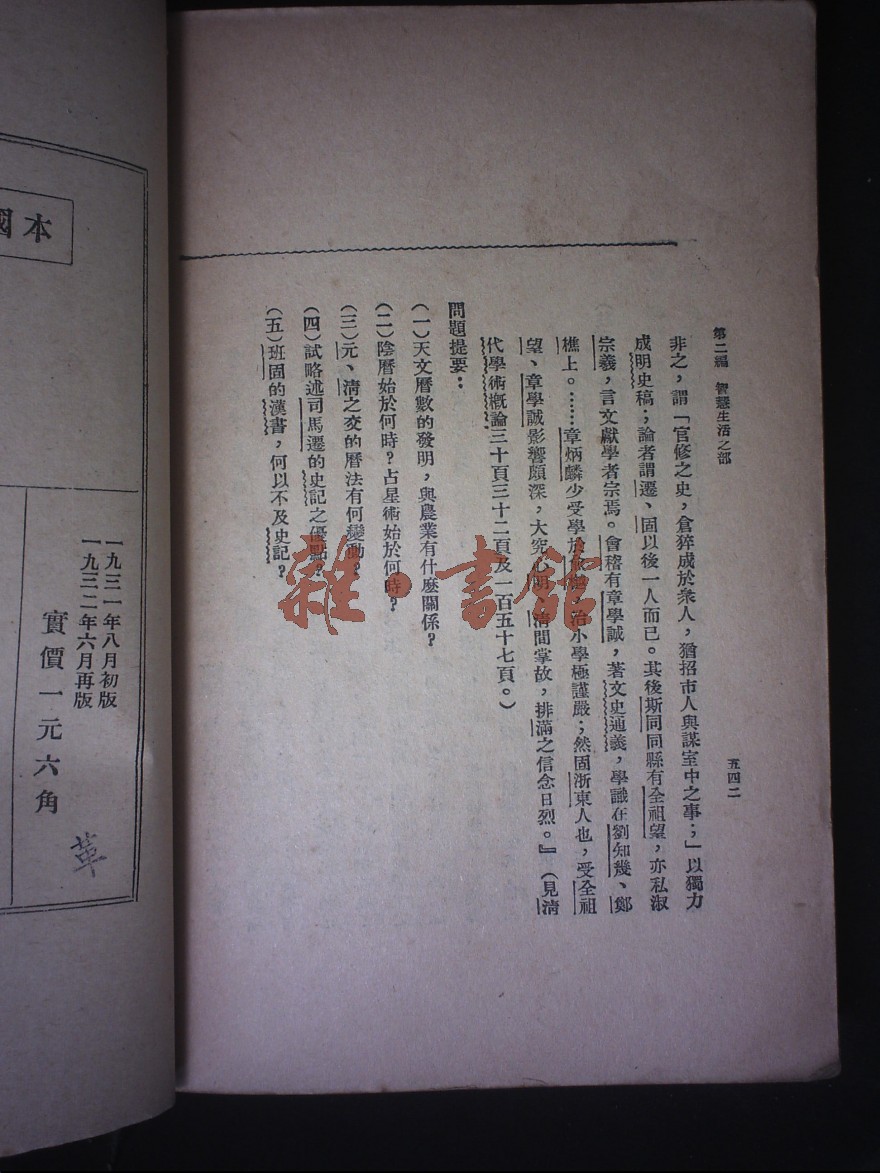 第二編 智慧生活之部
五四二
非之，謂「官修之史，倉猝成於衆人，猶招市人與謀室中之事；」以獨力
成明史稿；論者謂遷、固以後一人而已。其後斯同同縣有全祖望，亦私淑
宗羲，言文獻學者宗焉。會稽有章學誠，著文史通義，學識在劉知幾、鄭
樵上。……章炳麟少受學於 治小學極謹嚴；然固浙東人也，受全祖
望、章學誠影響頗深，大究心明 清間掌故，排滿之信念日烈。』（見清
代學術概論三十頁三十二頁及一百五十七頁。）
問題提要：
（一）天文曆數的發明，與農業有什麼關係？
（二）陰曆始於何時？占星術始於何時？
（三）元、清之交的曆法有何變動？
（四）試略述司馬遷的史記之優點？
（五）班固的漢書，何以不及史記？
本國
一九三一年八月初版
一九三二年六月再版
實價一元六角
革
雜·書館